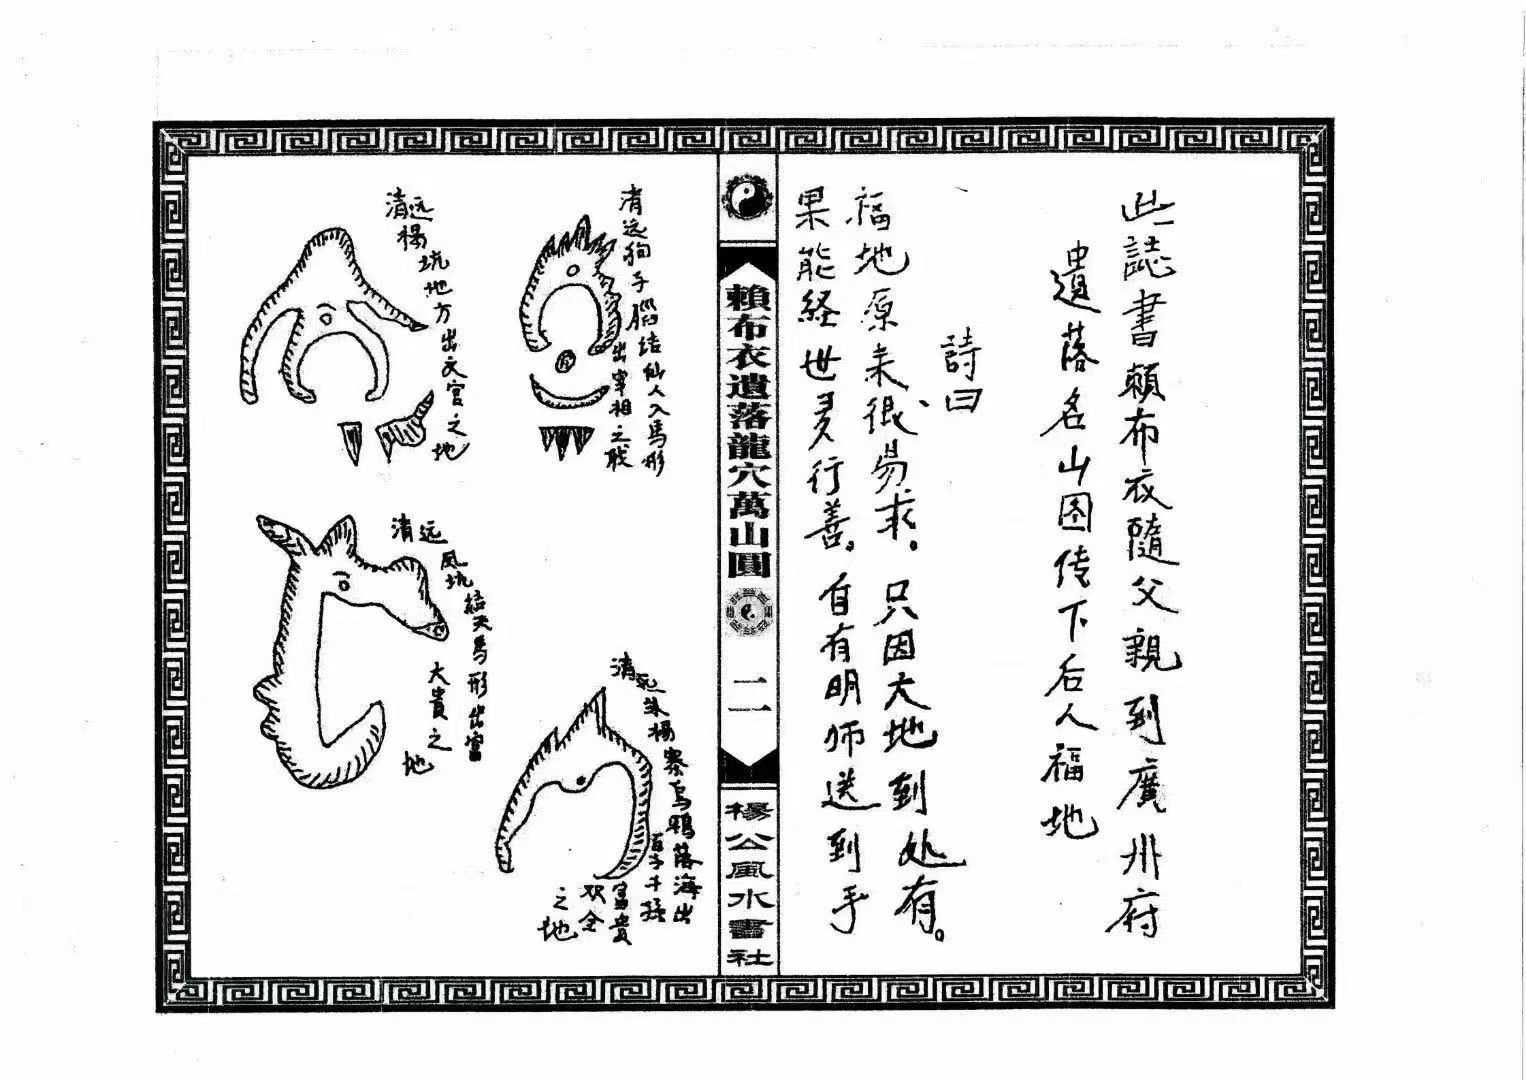 此誌書賴布衣隨父親到廣州府
遺落名山图传下后人福地
詩曰
福地原来很易求。只因大地到处有。
果能経世多行善。自有明师送到手
賴布衣遺落龍穴萬山圓
二一
楊公風水書社
清远狗子腦结仙人入馬形
出宰相之戝
清远楊坑地方出文官之地
清远朱楊寨烏鴉落海出
百子千孫
富貴
双全
之地
清远風坑結天馬形出富
大貴之
地